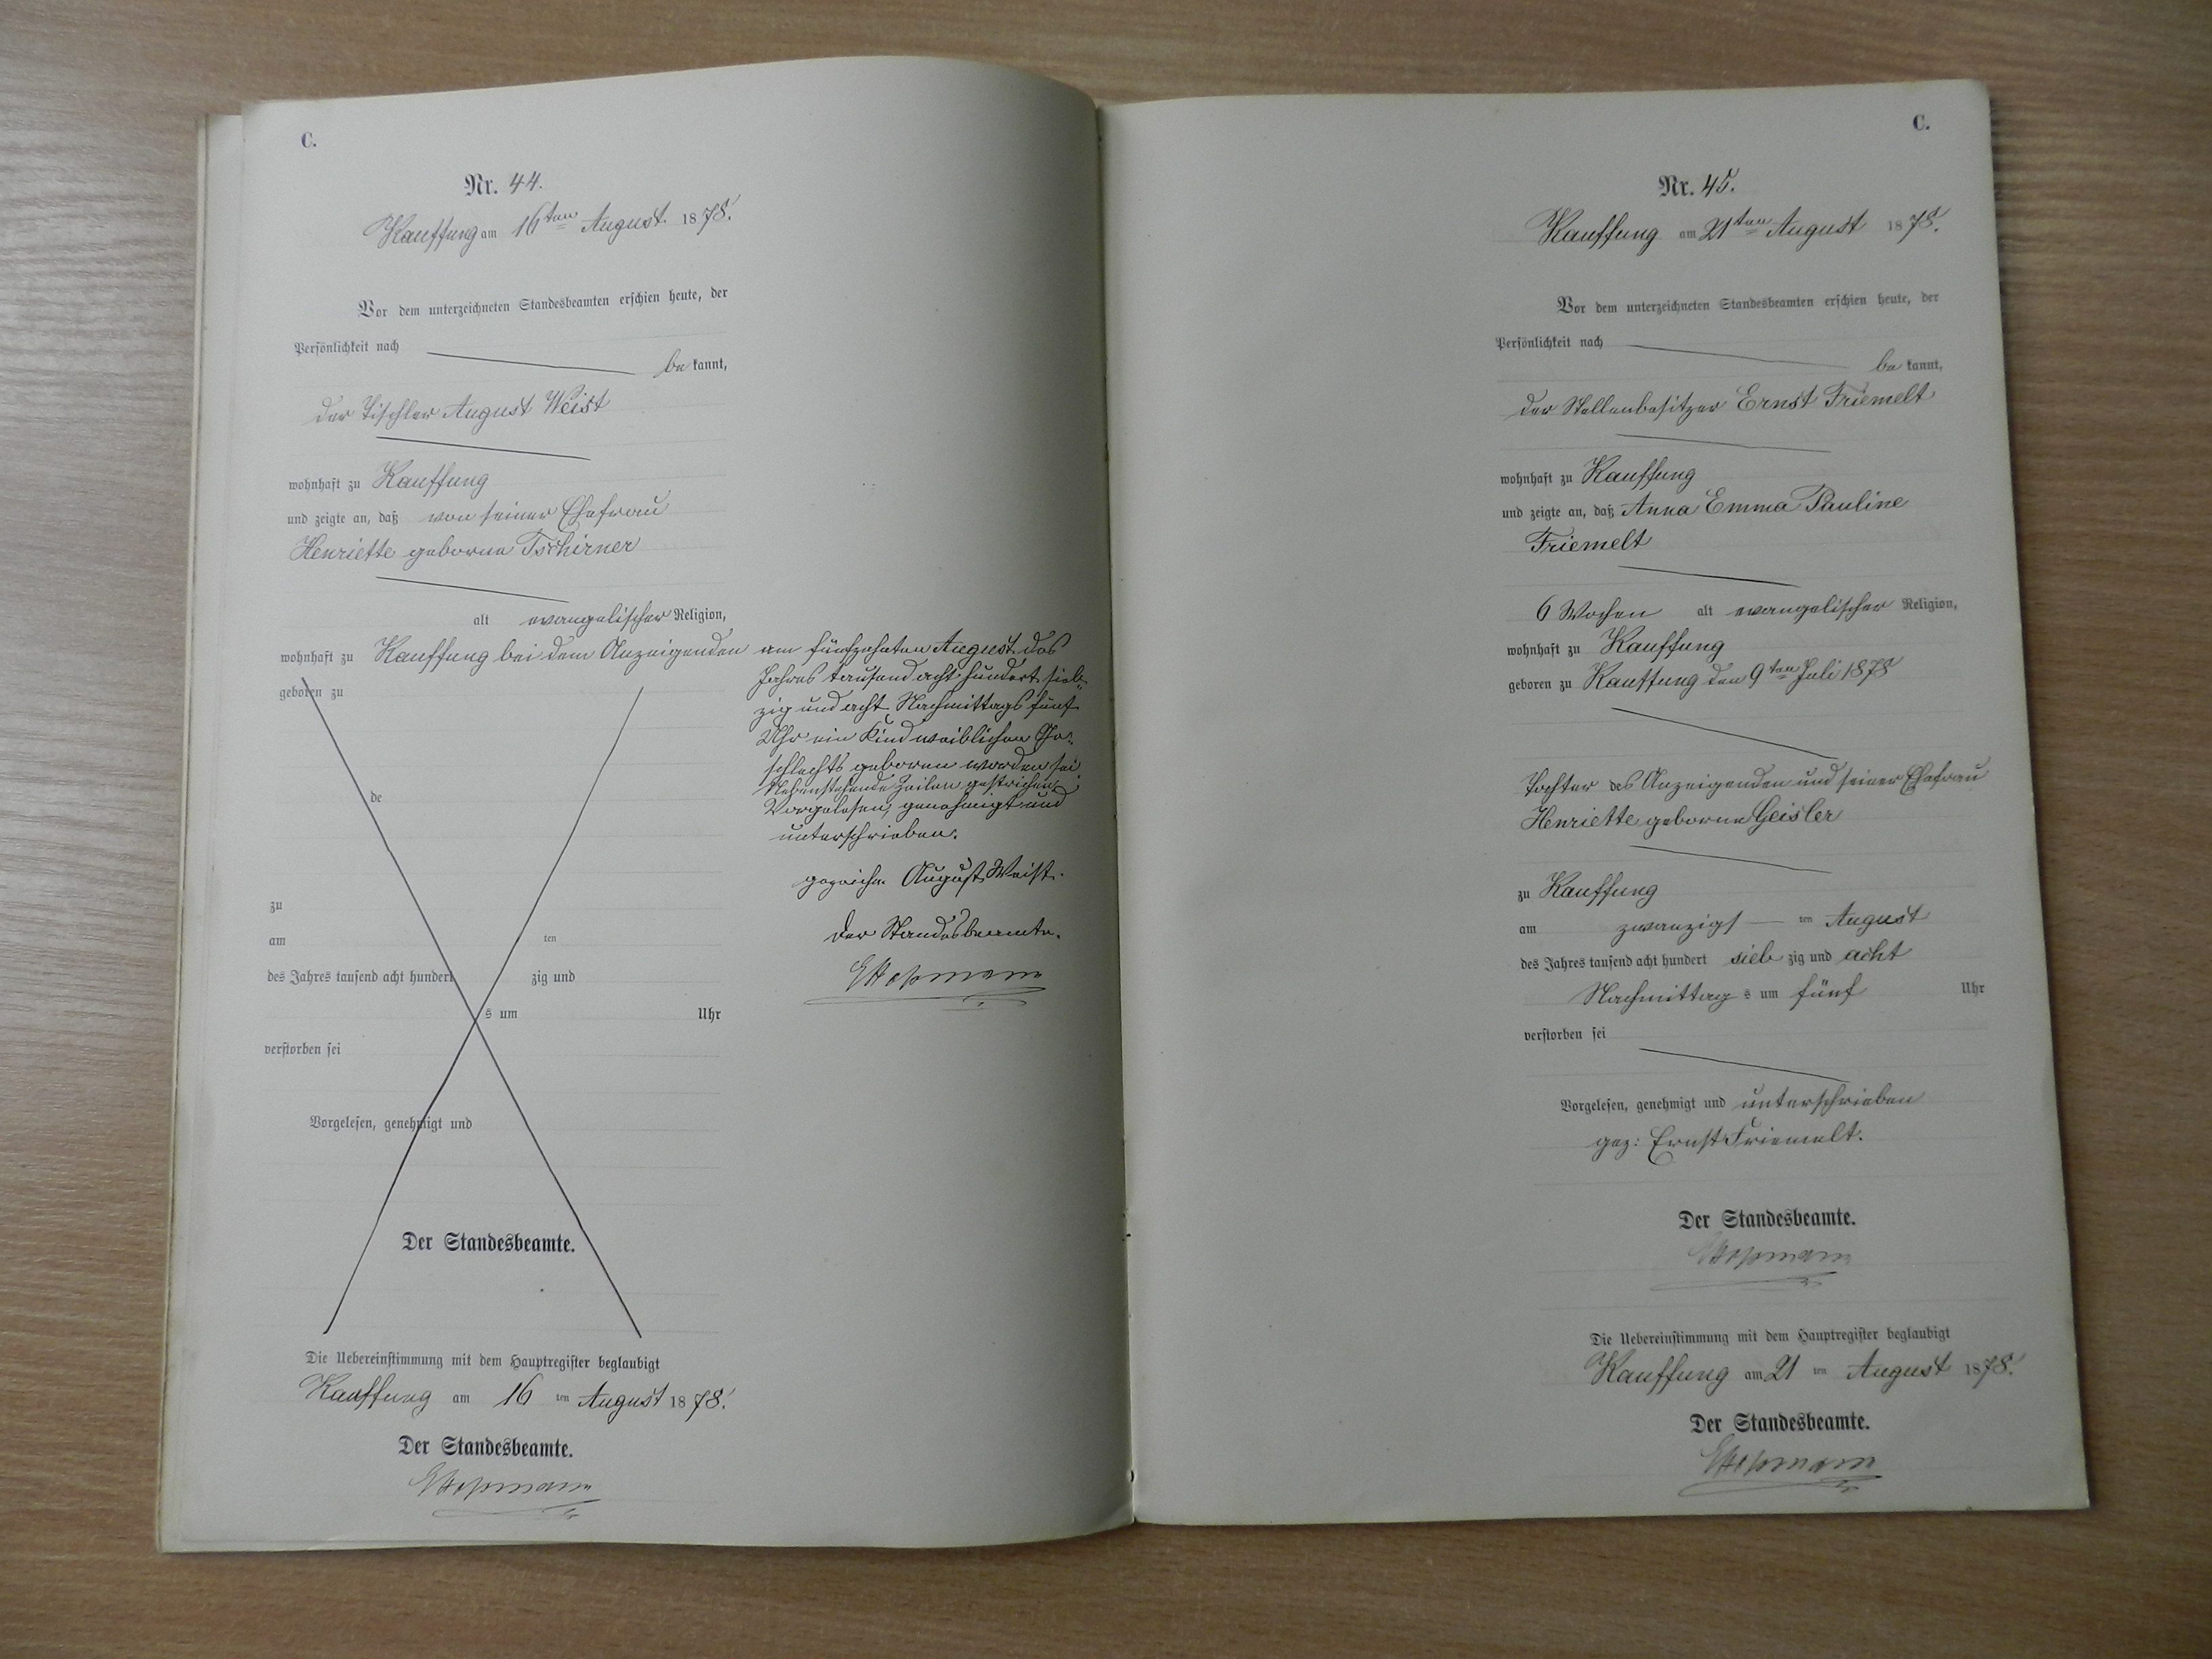 C.
Nr. 44.
Kauffung am 16ten August 1878.
Vor dem unterzeichneten Standesbeamten erschien heute, der
Persönlichkeit nach
be kannt,
der Tischler August Weist
wohnhaft zu Kauffung
und zeigte an, daß von seiner Ehefrau
Henriette geborne Tschirner
alt evangelischer Religion,
wohnhaft zu Kauffung bei dem Anzeigenden
geboren zu
de
zu
am ten
des Jahres tausend acht hundert zig und
s um Uhr
verstorben sei
Vorgelesen, genehmigt und
Der Standesbeamte.
Die Uebereinstimmung mit dem Hauptregister beglaubigt
Kauffung am 16 ten August 1878.
Der Standesbeamte.
am fünfzehnten August des
Jahres tausend acht hundert sieb-
zig und acht Nachmittags fünf
Uhr ein Kind weiblichen Ge-
schlechts geboren worden sei
Nebenstehende Zeilen gestrichen
Vorgelesen, genehmigt und
unterschrieben.
gezeichn. August Weist.
Der Standesbeamte.
C.
Nr. 45.
Kauffung am 21ten August 1878.
Vor dem unterzeichneten Standesbeamten erschien heute, der
Persönlichkeit nach
be kannt,
der Stellenbesitzer Ernst Friemelt
wohnhaft zu Kauffung
und zeigte an, daß Anna Emma Pauline
Friemelt
6 Wochen alt evangelischer Religion,
wohnhaft zu Kauffung
geboren zu Kauffung den 9ten Juli 1878
Tochter des Anzeigenden und seiner Ehefrau
Henriette geborne Geisler
zu Kauffung
am zwanzigst ten August
des Jahres tausend acht hundert sieb zig und acht
Nachmittag s um fünf Uhr
verstorben sei
Vorgelesen, genehmigt und unterschrieben
gez: Ernst Friemelt.
Der Standesbeamte.
Die Uebereinstimmung mit dem Hauptregister beglaubigt
Kauffung am 21 ten August 1878.
Der Standesbeamte.